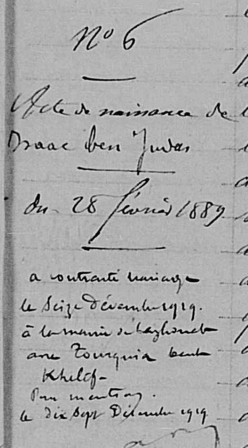 N° 6
Acte de naissance de
Isaac ben Judas
du 28 février 1889
a contracté mariage
le Seize Décembre 1919.
à la mairie de Laghouat
avec Tourquia bent
Khelef
Pour mention,
le dix Sept Décembre 1919